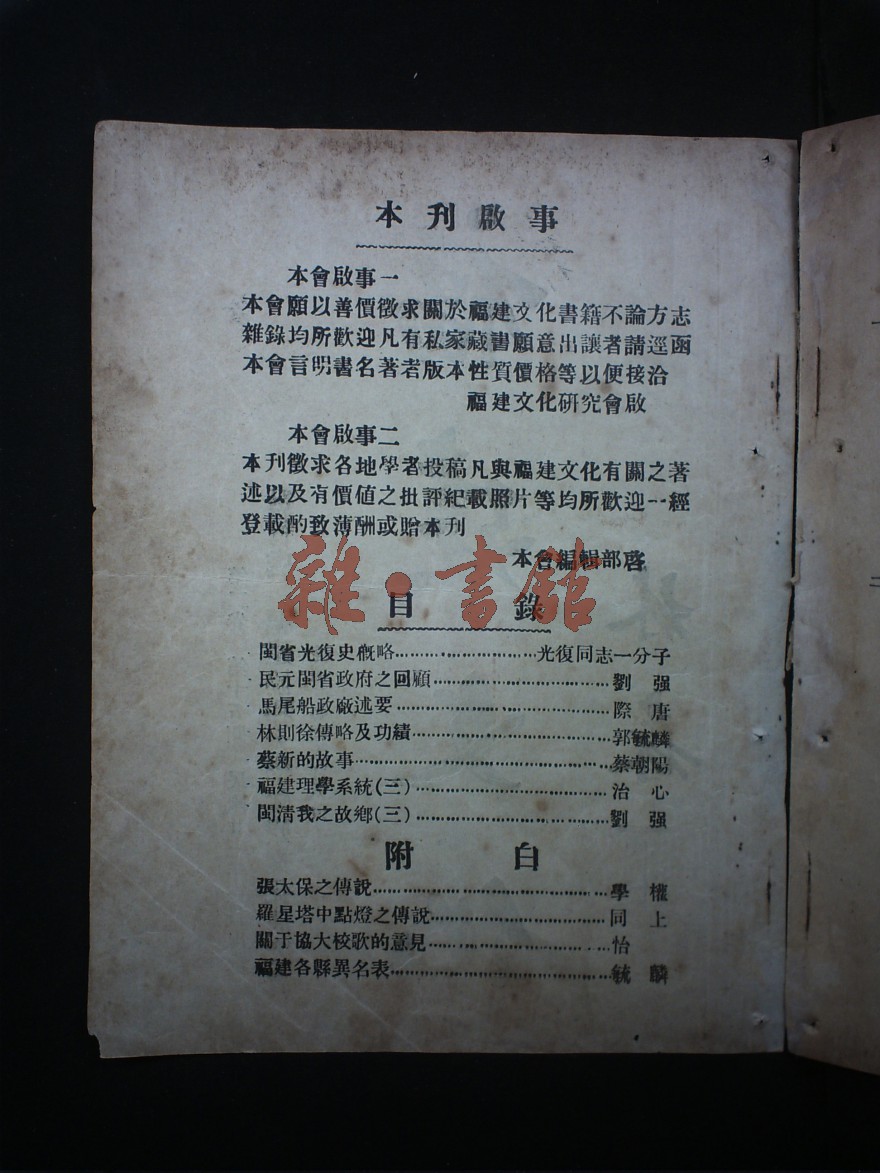 本刊啟事
本會啟事一
本會願以善價徵求關於福建文化書籍不論方志
雜錄均所歡迎凡有私家藏書願意出讓者請逕函
本會言明書名著者版本性質價格等以便接洽
福建文化研究會啟
本會啟事二
本刊徵求各地學者投稿凡與福建文化有關之著
述以及有價値之批評紀載照片等均所歡迎一經
登載酌致薄酬或贈本刊
本會編輯部啓
雜·書館
目錄
閩省光復史槪略……………………光復同志一分子
民元閩省政府之回顧……………………劉强
馬尾船政廠述要……………………際唐
林則徐傳略及功績……………………郭毓麟
蔡新的故事……………………蔡朝陽
福建理學系統(三)……………………治心
閩淸我之故鄉(三)……………………劉强
附白
張太保之傳說……………………學權
羅星塔中點燈之傳說……………………同上
關于協大校歌的意見……………………怡
福建各縣異名表……………………毓麟